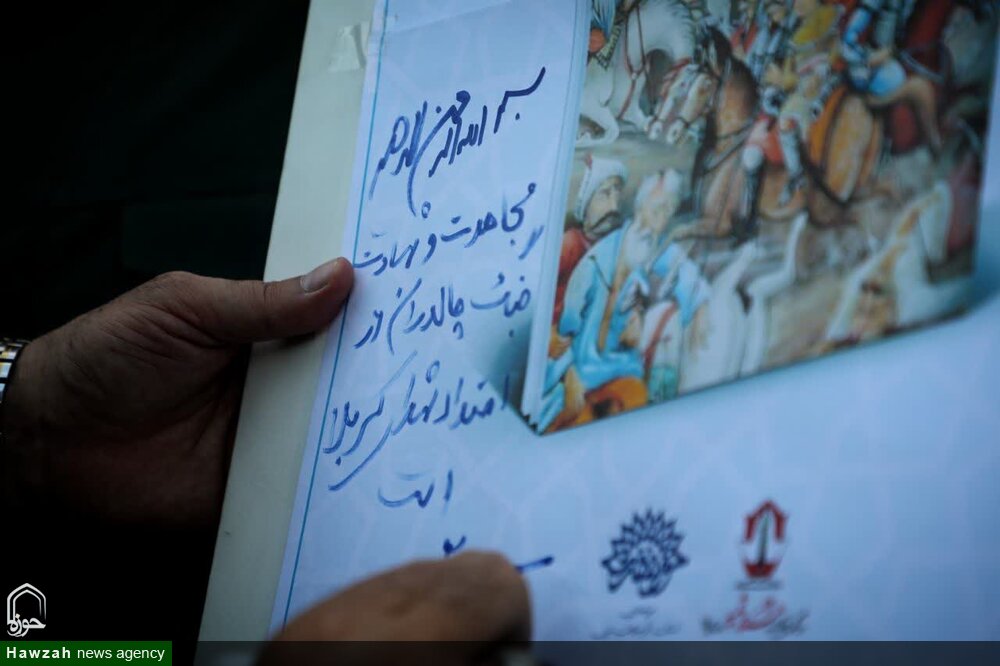 بسم الله الرحمن الرحیم
مجاهدت و شهادت
جنگ چالدران در
امتداد شهدای کربلا
است
حوزه
Hawzah news agency